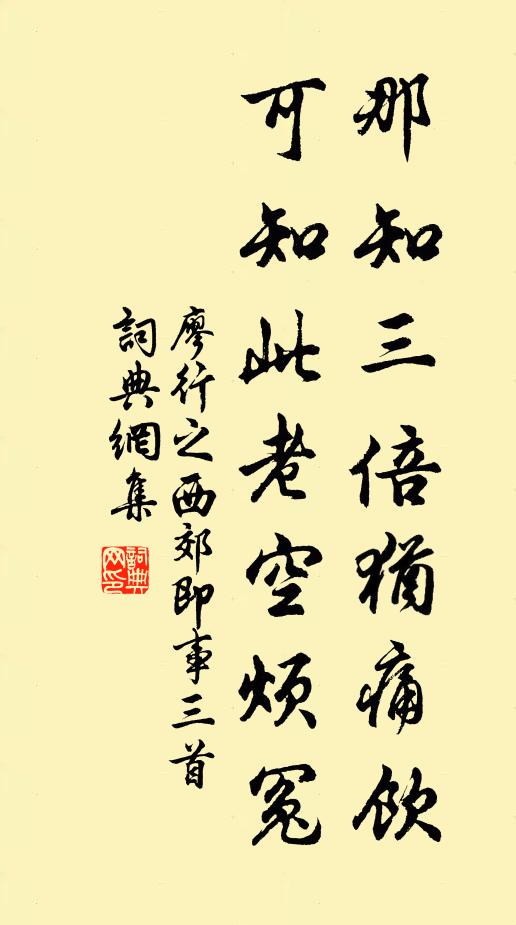 那知三倍猶痛飲
可知此老空煩冤
廖行之西郊即事三首
詞典網集
詞典网印